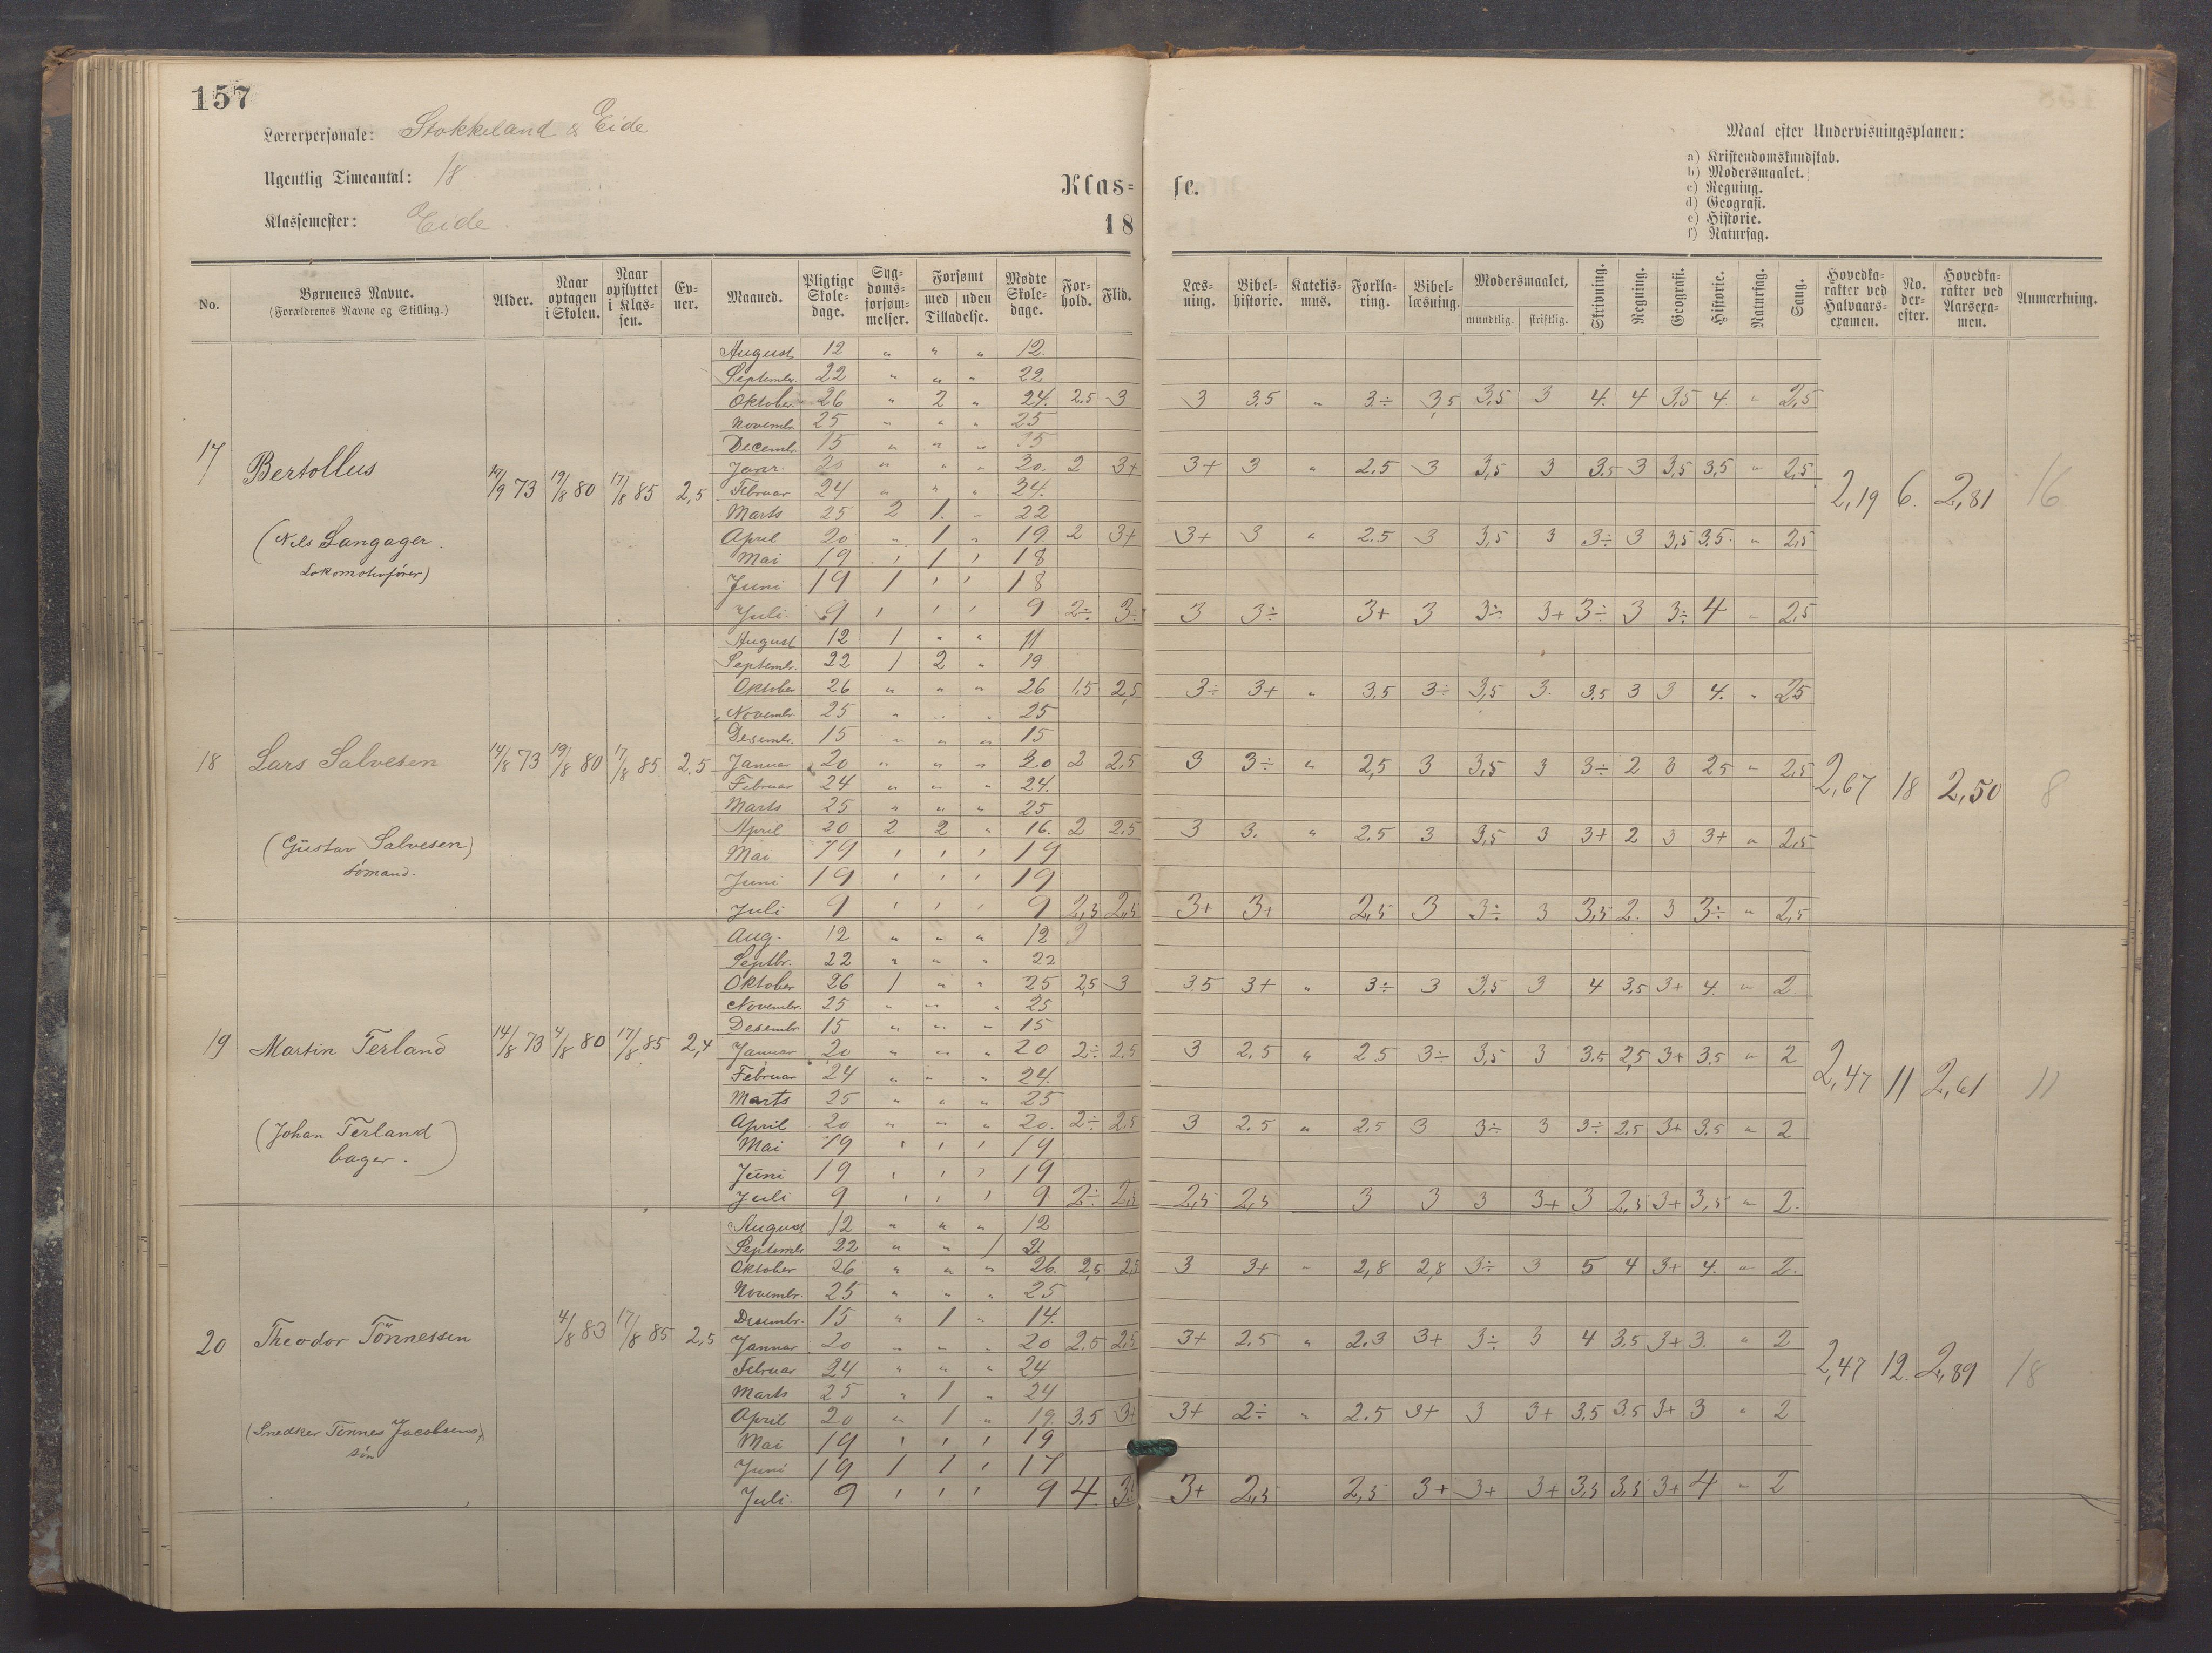 157
Lærerpersonale: Stokkeland & Eide
Ugentlig Timeantal: 18
Klassemester: Eide.
Klas= se.
18
Maal efter Undervisningsplanen:
a) Kristendomskundskab.
b) Modersmaalet.
c) Regning.
d) Geografi.
e) Historie.
f) Naturfag.
No. | Børnenes Navne. (Forældrenes Navne og Stilling.) | Alder. | Naar optagen i Skolen. | Naar opflyttet i Klassen. | Evner. | Maaned. | Pligtige Skoledage. | Sygdomsforsømmelser. | Forsømt med uden Tilladelse. | Mødte Skoledage. | Forhold. | Flid. | Læsning. | Bibelhistorie. | Katekismus. | Forklaring. | Bibellæsning. | Modersmaalet, mundtlig. skriftlig. | Skrivning. | Regning. | Geografi. | Historie. | Naturfag. | Sang. | Hovedkarakter ved Halvaarsexamen. | No. derefter. | Hovedkarakter ved Aarsexamen. | Anmærkning.
August 12 " " " 12.
Septembr. 22 " " " 22
Oktober. 26 " 2 " 24. 2.5 3 3 3.5 " 3÷ 3,5 3,5 3 4. 4 3,5 4. " 2,5
Novembr. 25 " " " 25
Decembr. 15 " " " 15
17 Bertollus 19/8 80 17/8 85 2,5
Janr. 20 " " " 20. 2 3+ 3+ 3 " 2.5 3 3,5 3 3.5 3 3,5 3,5 " 2,5
Februar 24 " " " 24.
2,19 6. 2,81 16
Marts 25 2 1. " 22
(Nils Langager.
Lokomotivfører)
April 20 " 1 " 19. 2 3+ 3+ 3 " 2.5 3 3,5 3 3÷ 3 3,5 3.5. " 2,5
Mai 19 ' 1 ' 18
Juni 19 1 ' ' 18
Juli. 9 ' ' ' 9 2÷ 3÷ 3 3÷ 3+ 3 3÷ 3+ 3÷ 3 3÷ 4 " 2,5
August 12 1 " " 11
Septembr. 22 1 2 " 19
Oktober 26 " " " 26 1,5 2,5 3÷ 3+ " 3.5 3÷ 3,5 3. 3.5 3 3 4. " 2,5
Novembr. 25 " " " 25
Desembr. 15 " " " 15
18 Lars Salvesen 14/8 73 19/8 80 17/8 85 2,5
Januar 20 " " " 20 2 2.5 3 3÷ " 2,5 3 3,5 3 3÷ 2 3 2.5 " 2,5
Februar 24 " " " 24.
2,67 18 2,50 8
Marts 25 " " " 25
April 20 2 2 " 16. 2 2.5 3 3. " 2.5 3 3,5 3 3+ 2 3 3+ " 2,5
(Gustav Salvesen)
sømand.
Mai 19 ' ' ' 19
Juni 19 ' ' ' 19
Juli 9 ' ' ' 9 2,5 2,5 3+ 3+ 2,5 3 3÷ 3 3,5 2. 3 3÷ " 2,5
Aug. 12 " " " 12
Septbr. 22 " " " 22
Oktober 26 1 " " 25 2,5 3 3.5 3+ " 3÷ 3 3,5 3 4 3,5 3+ 4. " 2.
Novembr. 25 " " " 25
Desembr 15 " " " 15
19 Martin Terland 14/8 73 4/8 80 17/8 85 2,4
Januar 20 " " " 20 2÷ 2.5 3 2.5 " 2.5 3÷ 3,5 3 3.5 2,5 3+ 3,5 " 2
Februar 24 " " " 24.
2,47 11 2,61 11
Marts 25 " " " 25
April 20 " " " 20. 2÷ 2.5 3 2.5 " 2.5 3 3÷ 3 3÷ 2.5 3+ 3.5 " 2
(Johan Terland
bager.)
Mai 19 ' ' ' 19
Juni 19 ' ' ' 19
Juli 9 ' ' ' 9 2÷ 2,5 2,5 2,5 3 3 3 3+ 3 2,5 3+ 3,5 " 2.
August 12 " " " 12
Septembr 22 " " 1 21
Oktober 26 " " " 26. 2,5 2,5 3 3+ " 2,8 2,8 3÷ 3 5 4 3+ 4. " 2.
Novembr. 25 " " " 25
Desembr. 15 " 1 " 14.
20 Theodor Tönnessen 4/8 83 17/8 85 2,5
Januar 20 " " " 20 2.5 2,5 3+ 2.5 " 2.3 3+ 3÷ 3 4 3.5 3+ 3. " 2
Februar 24 " " " 24
2,47 12. 2,89 18
Marts 25 " 1 " 24
April 20 " 1 " 19. 3.5 3+ 3+ 2÷ " 2.5 3+ 3 3+ 3.5 3.5 3+ 3 " 2
(Snedker Tønnes Jacobsens
søn)
Mai 19 ' ' ' 19
Juni 19 1 1 ' 17
Juli. 9 ' ' ' 9 4. 3+ 2,5 2,5 3+ 3+ 3+ 3,5 3,5 3+ 4 " 2